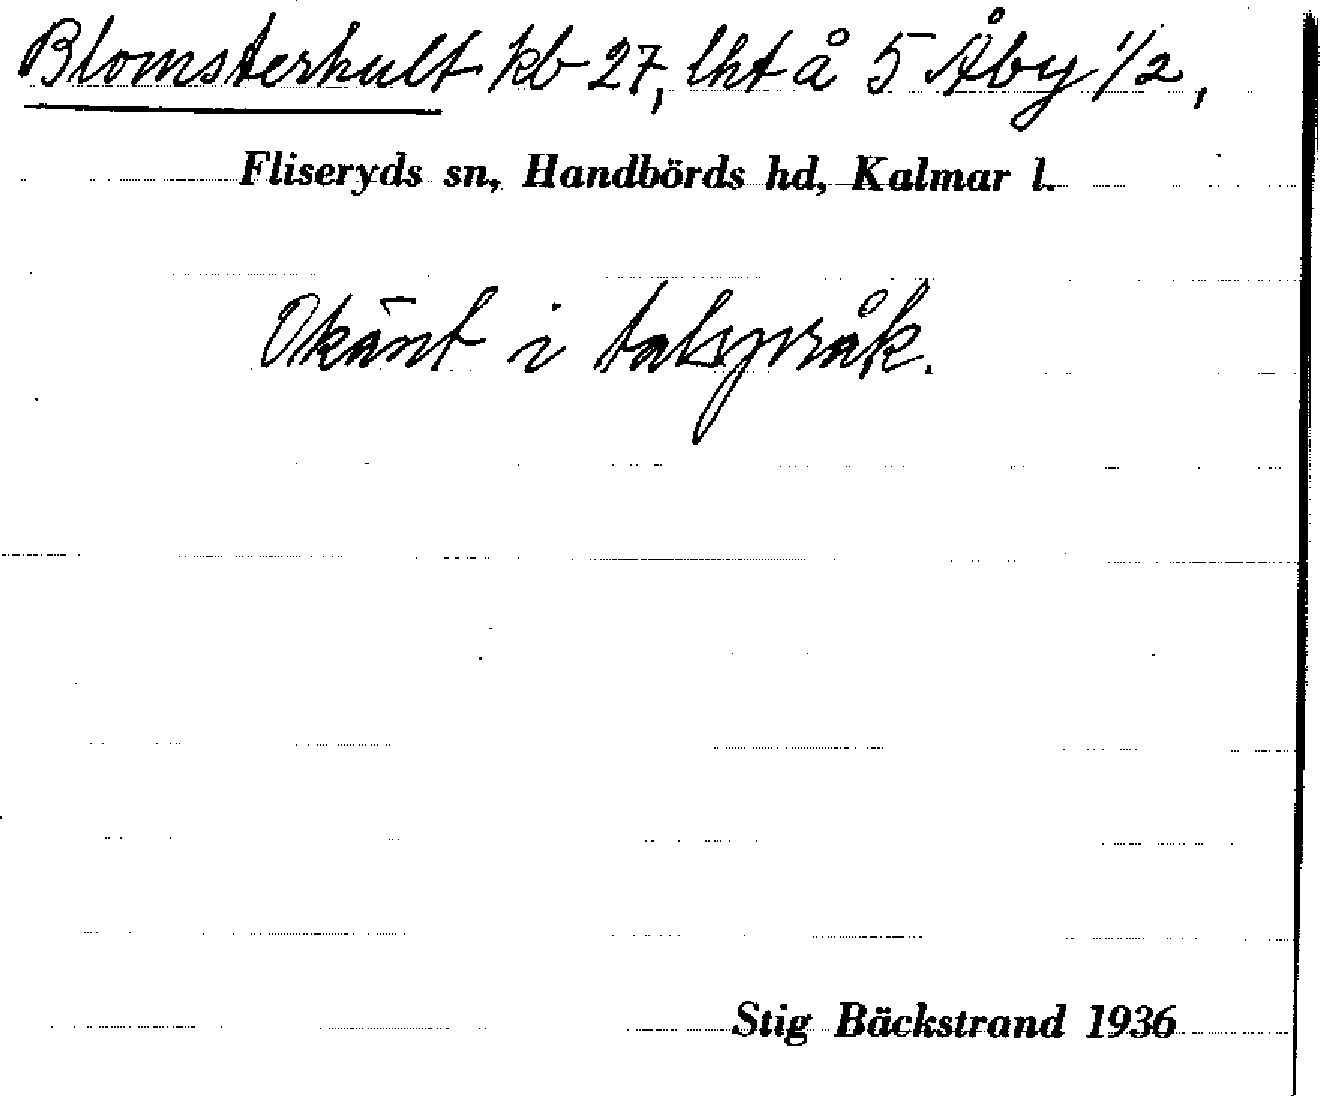 Blomsterhult kb 27, lht å 5 Åby 1/2,
Fliseryds sn, Handbörds hd, Kalmar l.
Okänt i talspråk.
Stig Bäckstrand 1936